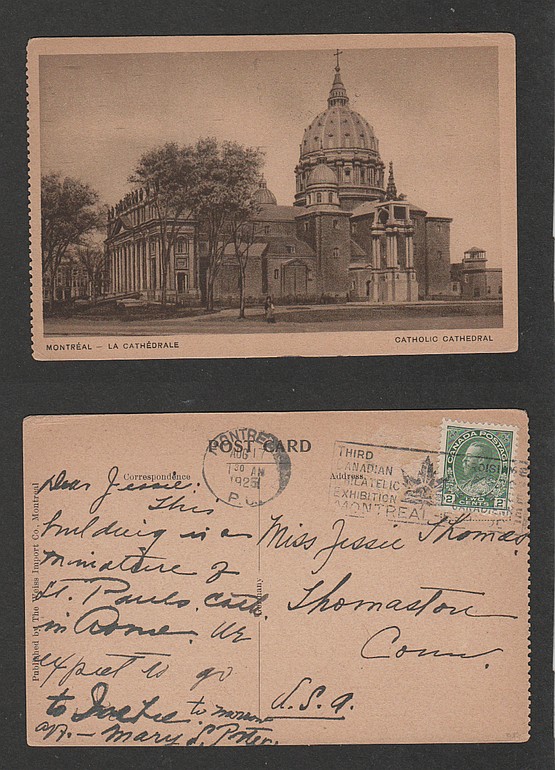 MONTRÉAL – LA CATHÉDRALE
CATHOLIC CATHEDRAL
POST CARD
Correspondence
Address
MONTREAL
AUG 17
7 30 AM
1925
P.Q.
THIRD
CANADIAN
PHILATELIC
EXHIBITION
MONTREAL
TROISIÈME
CANADA POSTAGE
2 2
TWO CENTS
Published by The Weiss Import Co. Montreal
Germany
Dear Jessie:
This
building is a
miniature of
St. Pauls. Cath.
in Rome. We
expect to go
to Quebec to morrow
aft. – Mary L. Porter.
Miss Jessie Thomas,
Thomaston
Conn.
U.S.A.